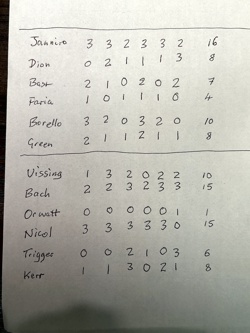 Janniro 3 3 2 3 3 2 16
Dion 0 2 1 1 1 3 8
Bast 2 1 0 2 0 2 7
Faria 1 0 1 1 1 0 4
Borello 3 2 0 3 2 0 10
Green 2 1 1 2 1 1 8
Vissing 1 3 2 0 2 2 10
Bach 2 2 3 2 3 3 15
Orwatt 0 0 0 0 0 1 1
Nicol 3 3 3 3 3 0 15
Trigger 0 0 2 1 0 3 6
Kerr 1 1 3 0 2 1 8